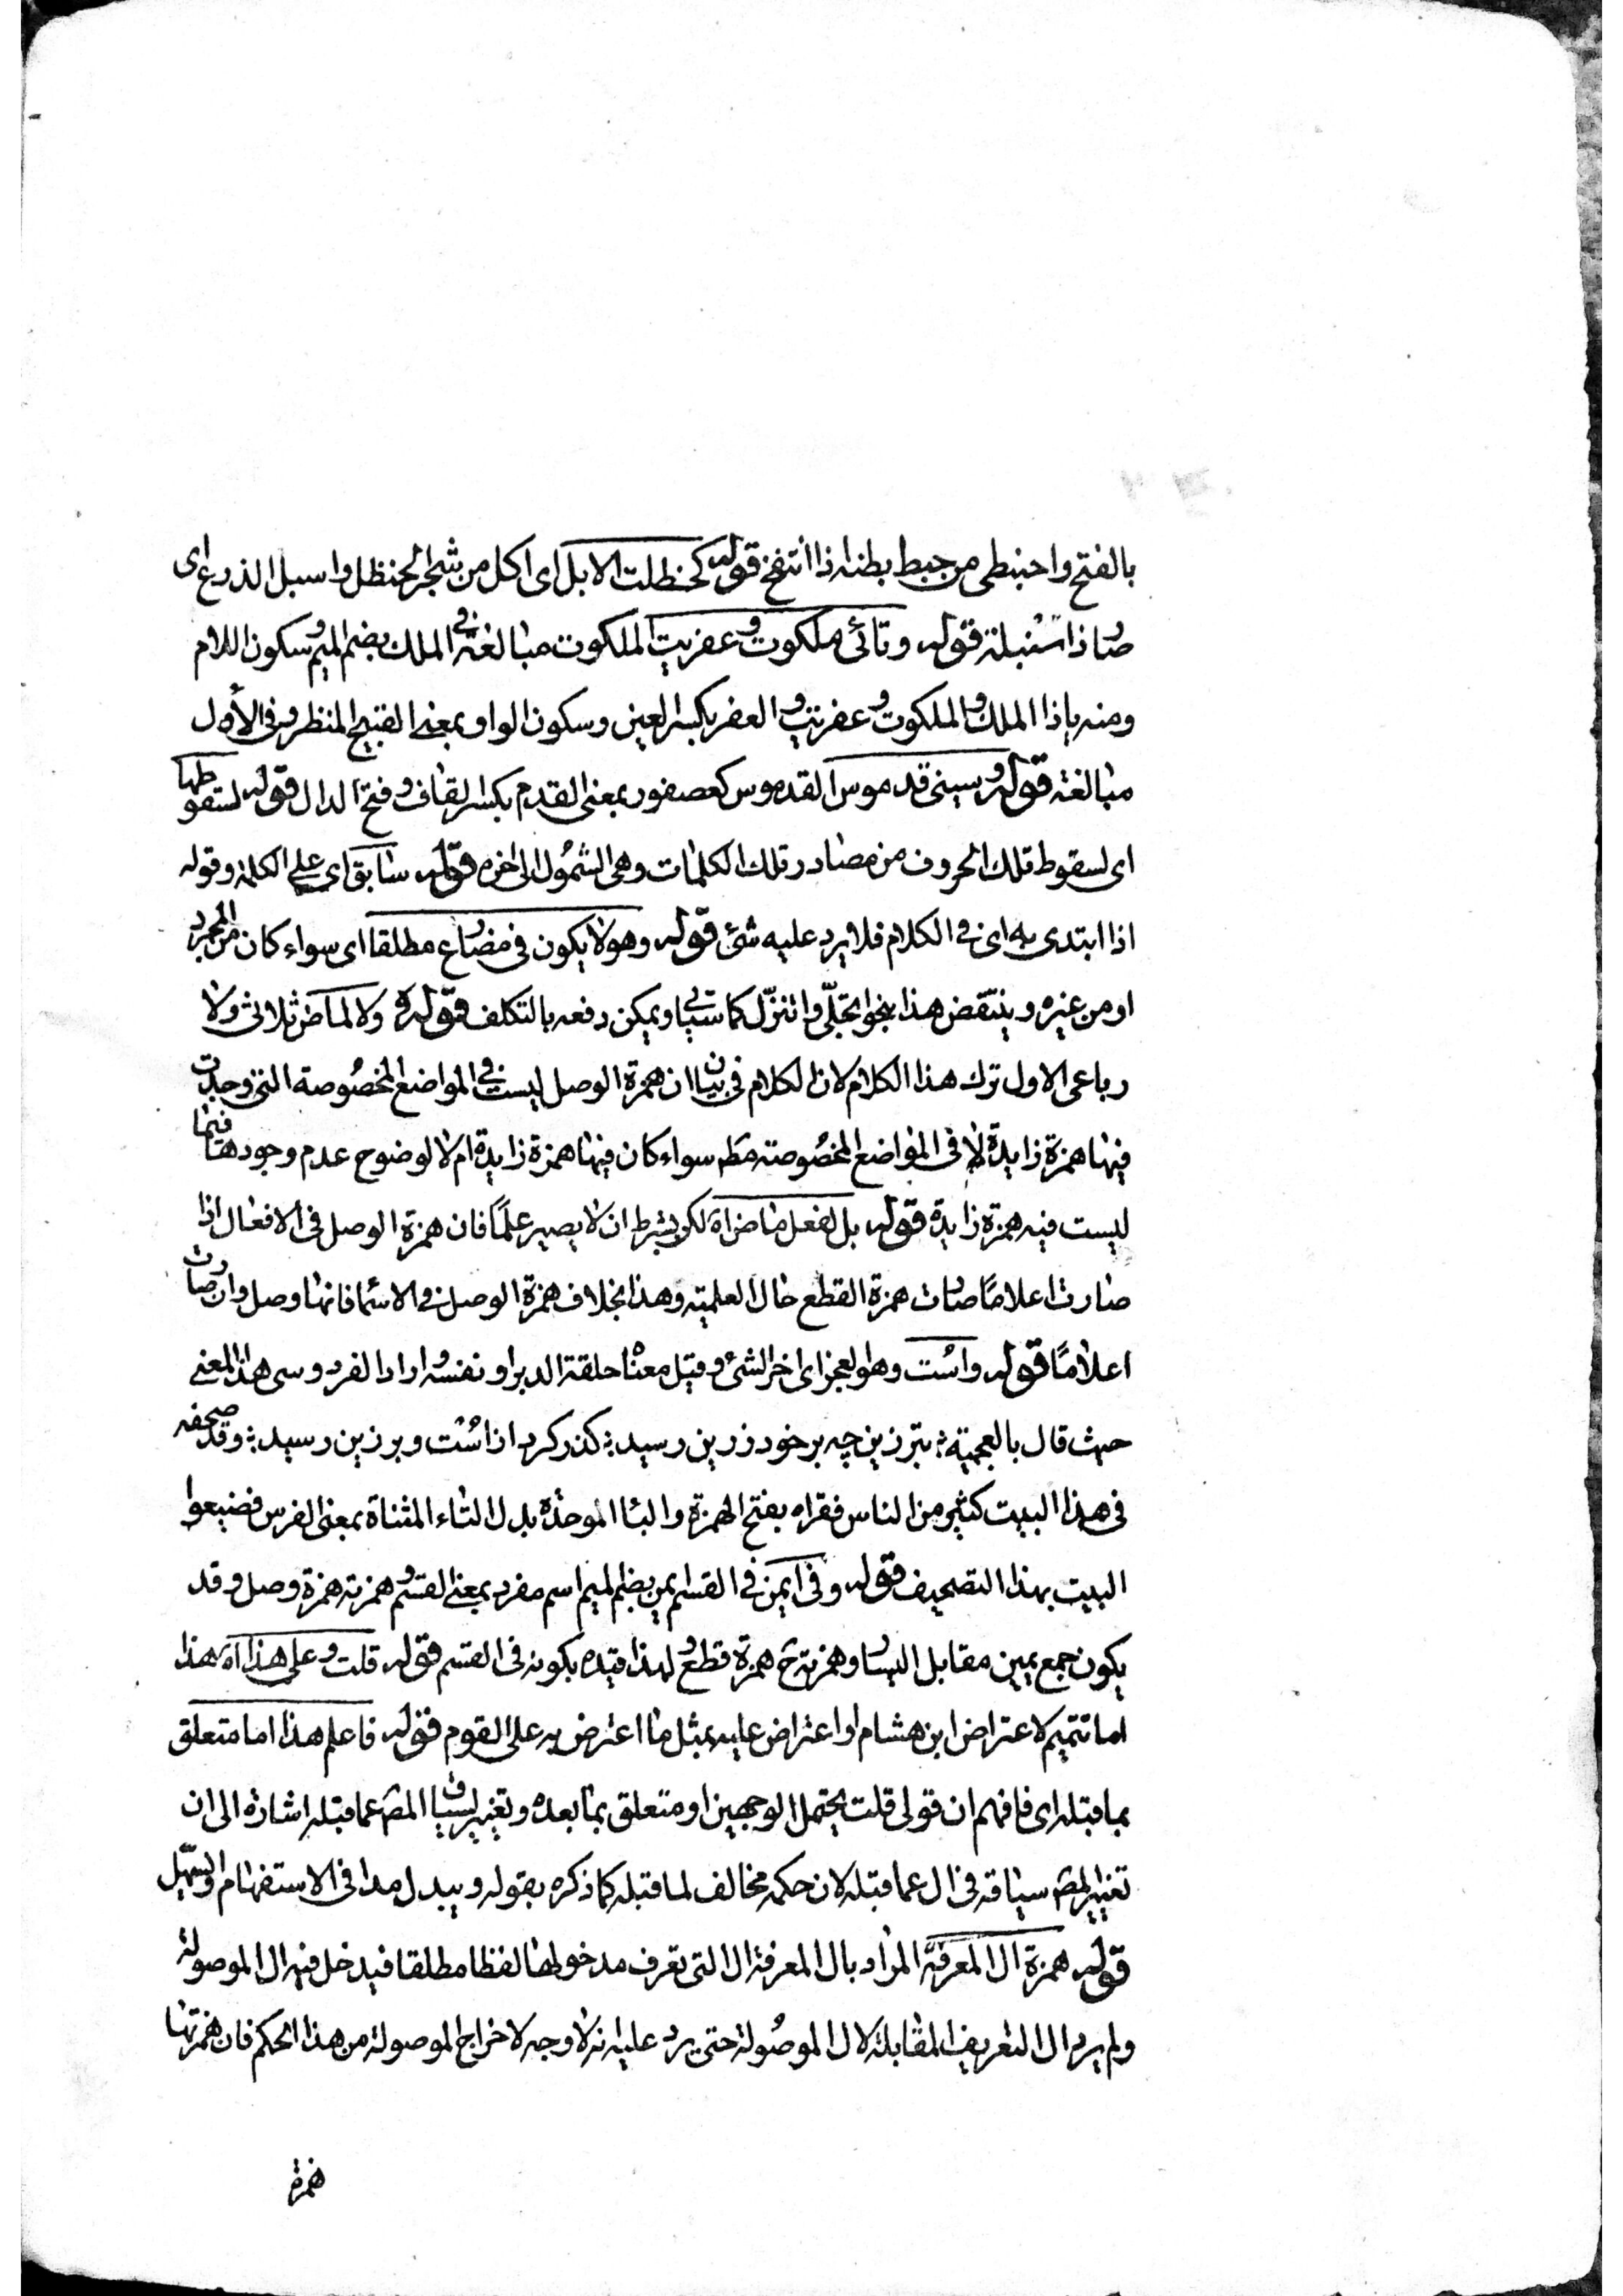 بالفتح واحبنطى من حبط بطنه اذا انتفخ قوله كحظلت الابل اى اكل من شجر الحنظل واسبل الذرع اى
صار ذا سنبلة قوله وتائى ملكوت وعفريت الملكوت مبالغة فى الملك بضم الميم وسكون اللام
ومنه ياذا الملك والملكوت وعفريت والعفر بكسر العين وسكون الواو بمعنى القبيح المنظر وفى الأول
مبالغة قوله وسينى قدموس القدموس كعصفور بمعنى القدم بكسر القاف وفتح الدال قوله لسقوطها
اى لسقوط تلك الحروف من مصادر تلك الكلمات وهى الشمول الى اخره قوله سابق اى على الكلمة وقوله
اذا ابتدى به اى فى الكلام فلا يرد عليه شئ قوله وهو لا يكون فى مضارع مطلقا اى سواء كان من المجرد
او من غيره وينتقض هذا بنحو اتجلّى واتنزّل كما سيأتى ويمكن دفعه بالتكلف قوله ولا لماض ثلاثى ولا
رباعى الاول ترك هذا الكلام لان الكلام فى بيان ان همزة الوصل ليست فى المواضع المخصوصة التى وجدت
فيها همزة زايدة لا فى المواضع المخصوصة مطـ سواء كان فيها همزة زايدة ام لا لوضوح عدم وجودها فيما
ليست فيه همزة زايدة قوله بل لفعل ماض اه لكن بشرط ان لا يصير علمًا فان همزة الوصل فى الافعال اذا
صارت اعلامًا صارت همزة القطع حال العلمية وهذا بخلاف همزة الوصل فى الاسما فانها وصل وان صارت
اعلامًا قوله واست وهو العجز اى اخر الشئ وقيل معناه حلقة الدبر او نفسه وارادا لفردوسى هذا المعنى
حيث قال بالعجمية ؛ تبرزين چه بر خود زرين رسيد ؛ كذر كرد از است وبر زين رسيد ؛ وقد صحفه
فى هذا البيت كثير من الناس فقراه بفتح الهمزة والبا الموحدة بدل التاء المثناة بمعنى الفرس فضيعوا
البيت بهذا التصحيف قوله وفى ايمن فى القسم ايمن بضم الميم اسم مفرد بمعنى القسم وهمزته همزة وصل وقد
يكون جمع يمين مقابل اليسار وهمزته ح همزة قطع ولهذا قيده بكونه فى القسم قوله قلت وعلى هذا اه هذا
اما تتميم لاعتراض ابن هشام او اعتراض عليه بمثل ما اعترض به على القوم قوله فاعلم هذا اما متعلق
بما قبله اى فافهم ان قولى قلت يحتمل الوجهين او متعلق بما بعده وتغيير لسياق المصـ عما قبله اشارة الى ان
تغيير المصـ سياقه فى ال عما قبله لان حكمه مخالف لما قبله كما ذكره بقوله ويبدل مدا فى الاستفهام او يسهّل
قوله همزة ال المعرفة المراد بال المعرفة ال التى تعرف مدخولها لفظا مطلقا فيدخل فيه ال الموصولة
ولم يرد ال التعريف المقابلة لال الموصولة حتى يرد عليه انه لا وجه لاخراج الموصولة من هذا الحكم فان همزتها
همزة